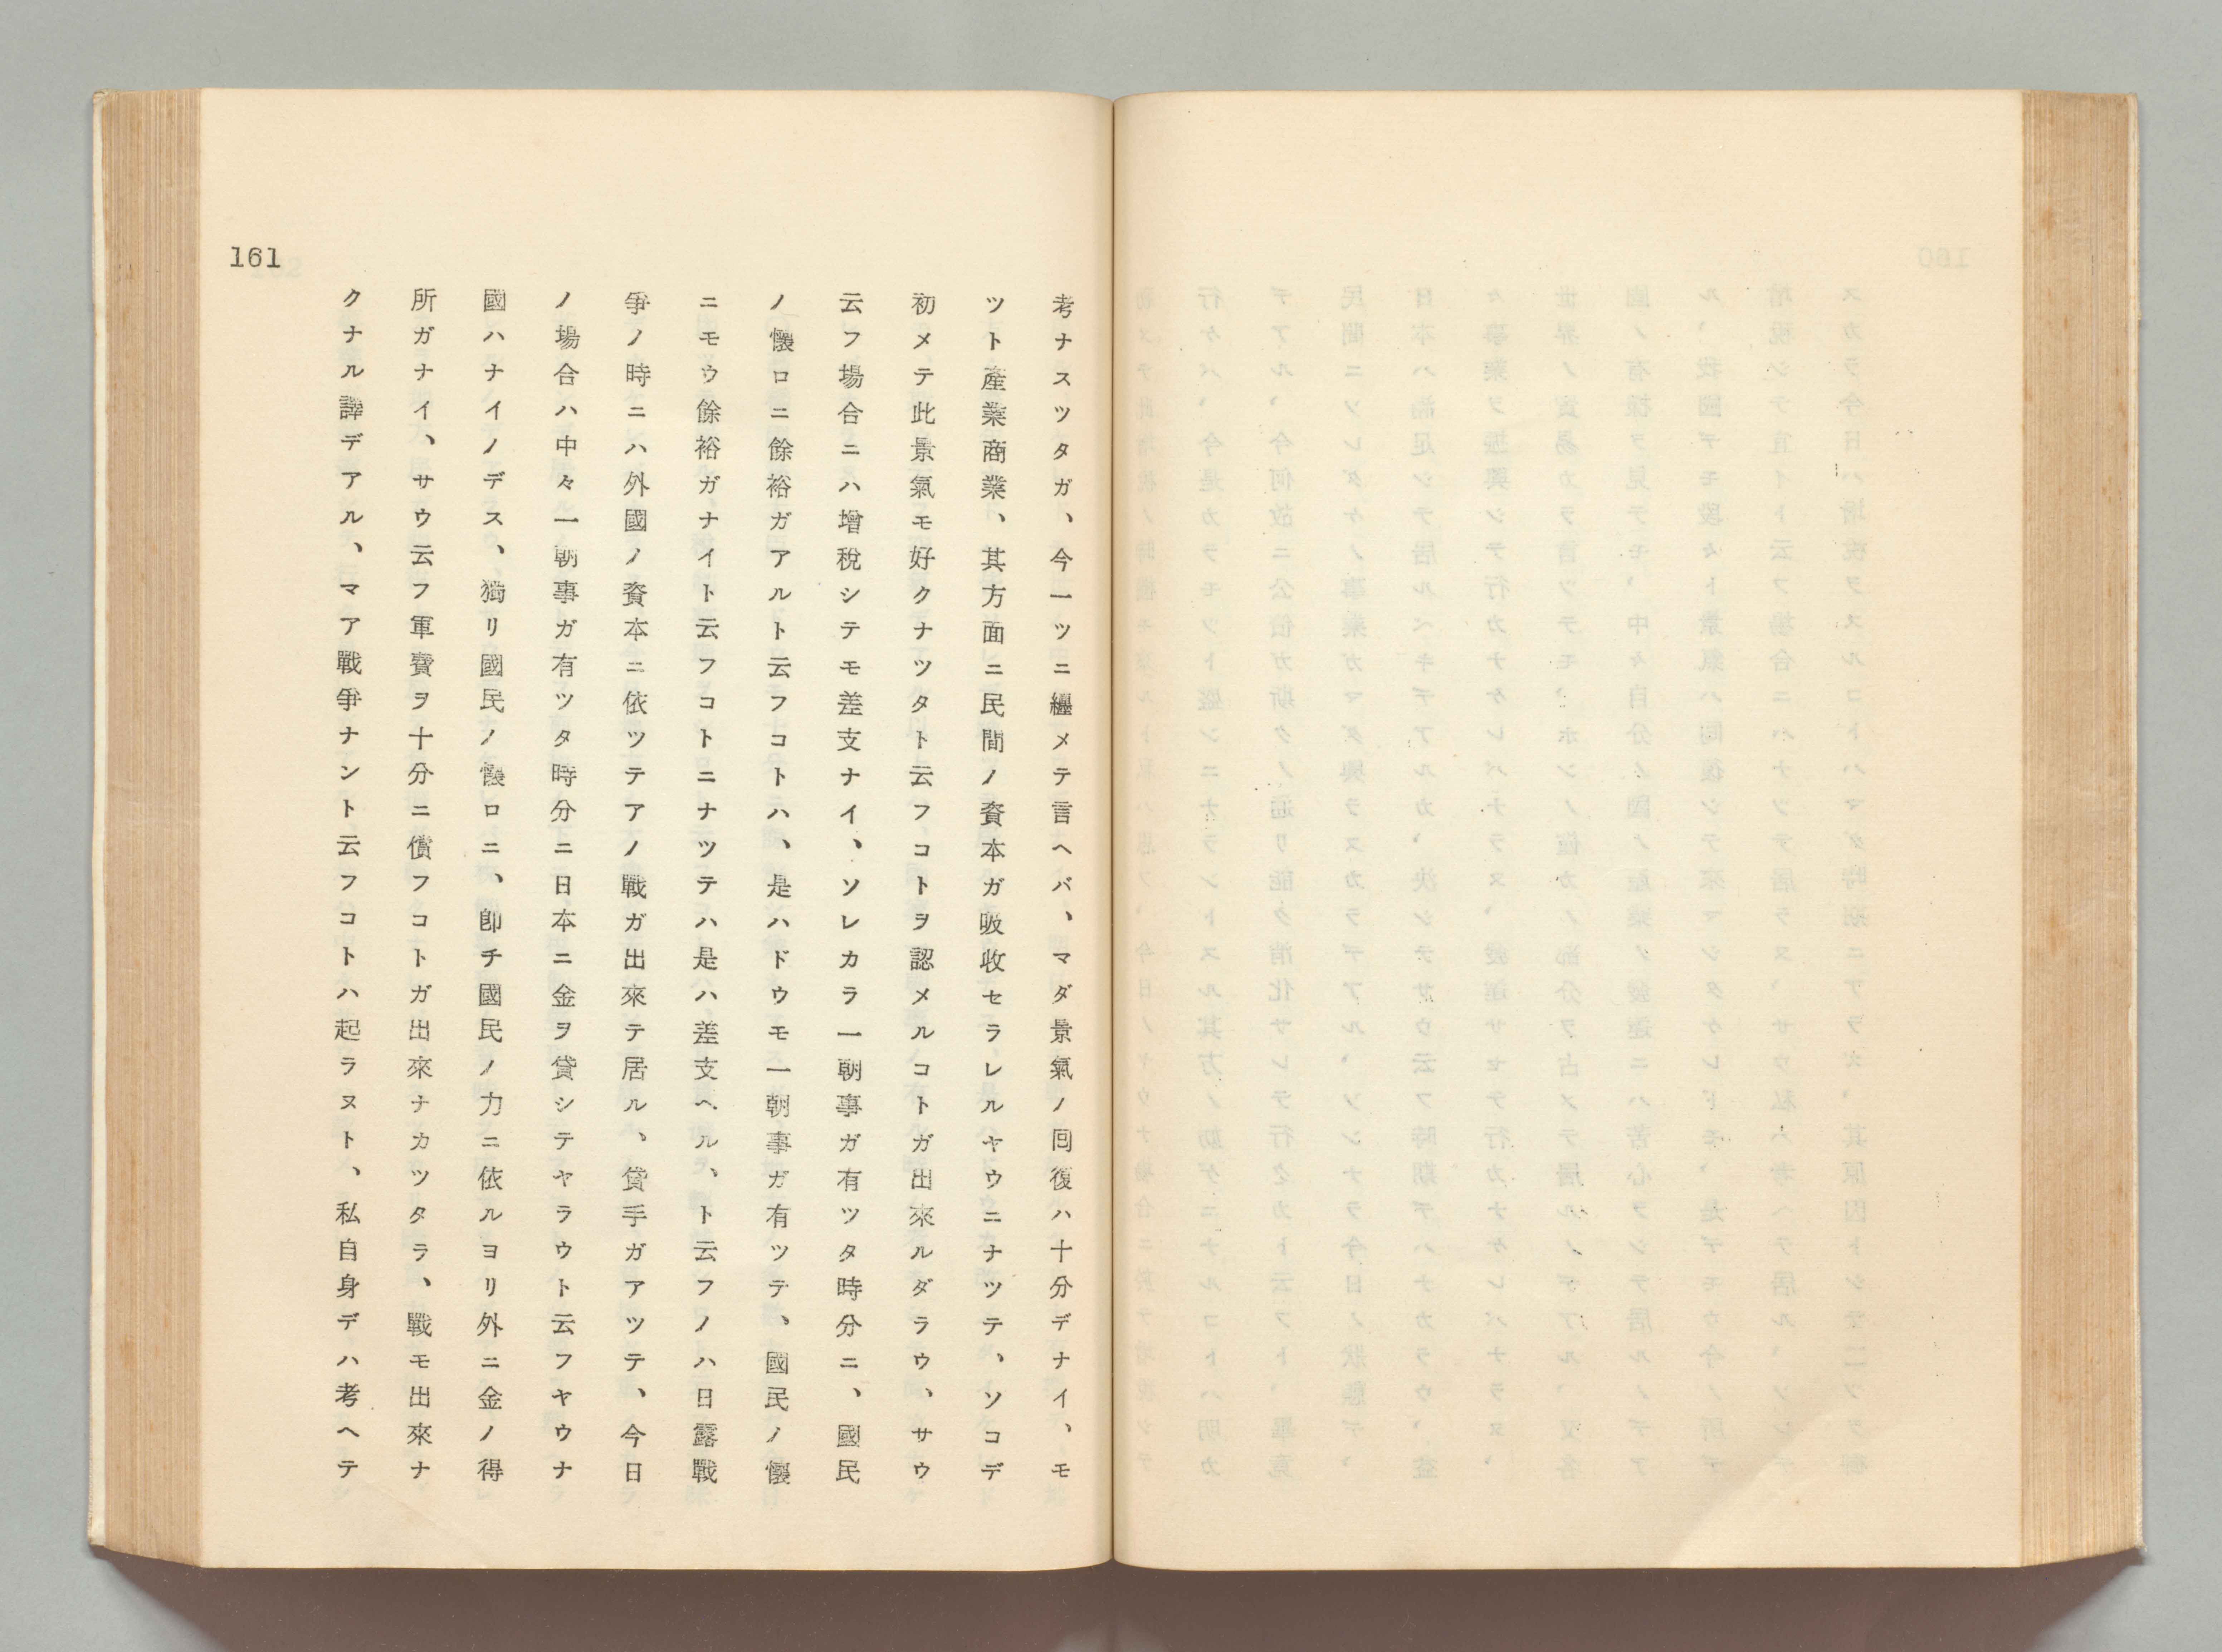 161
考ナスツタガ、今一ツニ纒メテ言ヘバ、マダ景氣ノ囘復ハ十分デナイ、モ
ツト產業商業、其方面ニ民間ノ資本ガ吸收セラレルヤウニナツテ、ソコデ
初メテ此景氣モ好クナツタト云フコトヲ認メルコトガ出來ルダラウ、サウ
云フ場合ニハ增稅シテモ差支ナイ、ソレカラ一朝事ガ有ツタ時分ニ、國民
ノ懷ロニ餘裕ガアルト云フコトハ、是ハドウモ一朝事ガ有ツテ、國民ノ懷
ニモウ餘裕ガナイト云フコトニナツテハ是ハ差支ヘル、ト云フノハ日露戰
爭ノ時ニハ外國ノ資本ニ依ツテアノ戰ガ出來テ居ル、貸手ガアツテ、今日
ノ場合ハ中々一朝事ガ有ツタ時分ニ日本ニ金ヲ貸シテヤラウト云フヤウナ
國ハナイノデス、獨リ國民ノ懷ロニ、卽チ國民ノ力ニ依ルヨリ外ニ金ノ得
所ガナイ、サウ云フ軍費ヲ十分ニ償フコトガ出來ナカツタラ、戰モ出來ナ
クナル譯デアル、マア戰爭ナント云フコトハ起ラヌト、私自身デハ考ヘテ